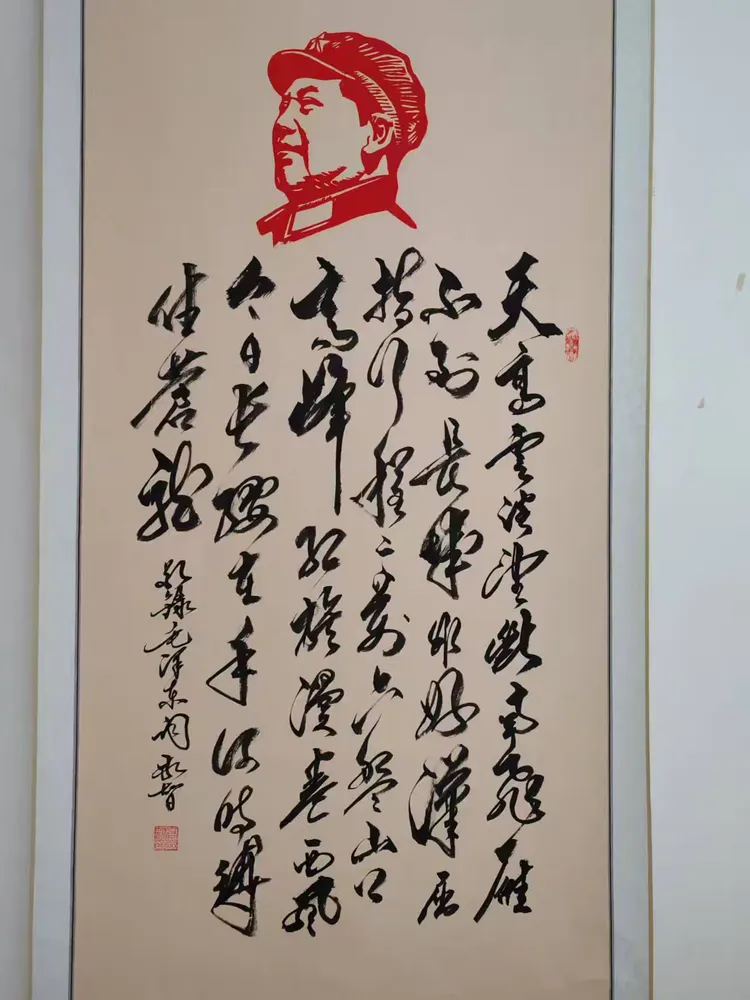 天高雲淡望斷南飛雁
不到長城非好漢屈
指行程二萬六盤山上
高峰紅旗漫卷西風
今日长纓在手何時縛
住蒼龍
錄毛澤東詞